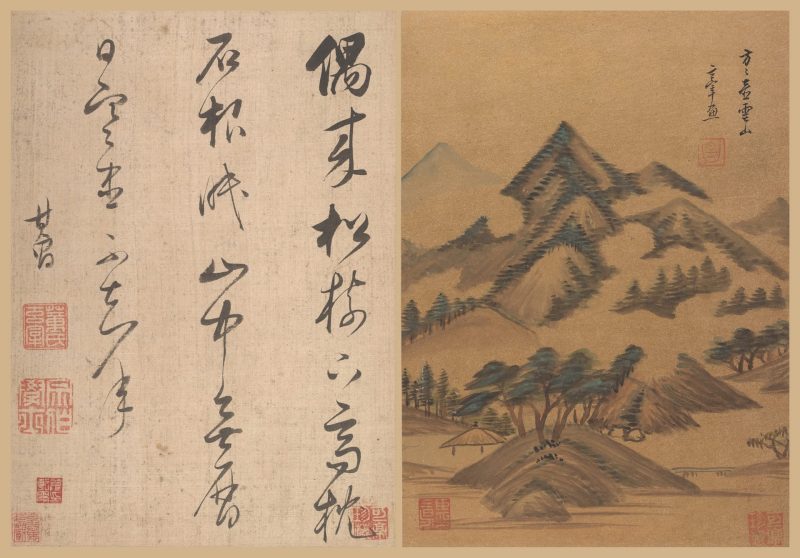 方方壺雲山
玄宰畫
偶來松樹下高枕
石根眠山中無曆
日寒盡不知年
其昌
董氏玄宰